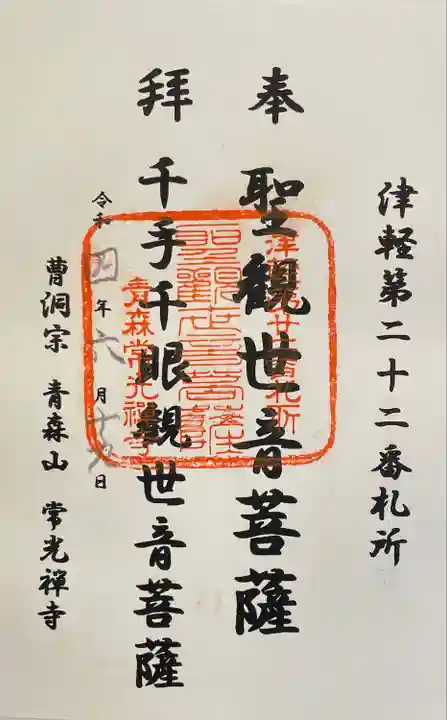 津軽第二十二番札所
奉 聖觀世音菩薩
拜 千手千眼觀世音菩薩
令和四年六月十九日
曹洞宗 青森山 常光禅寺
聖觀世音菩薩
青森常光禪寺